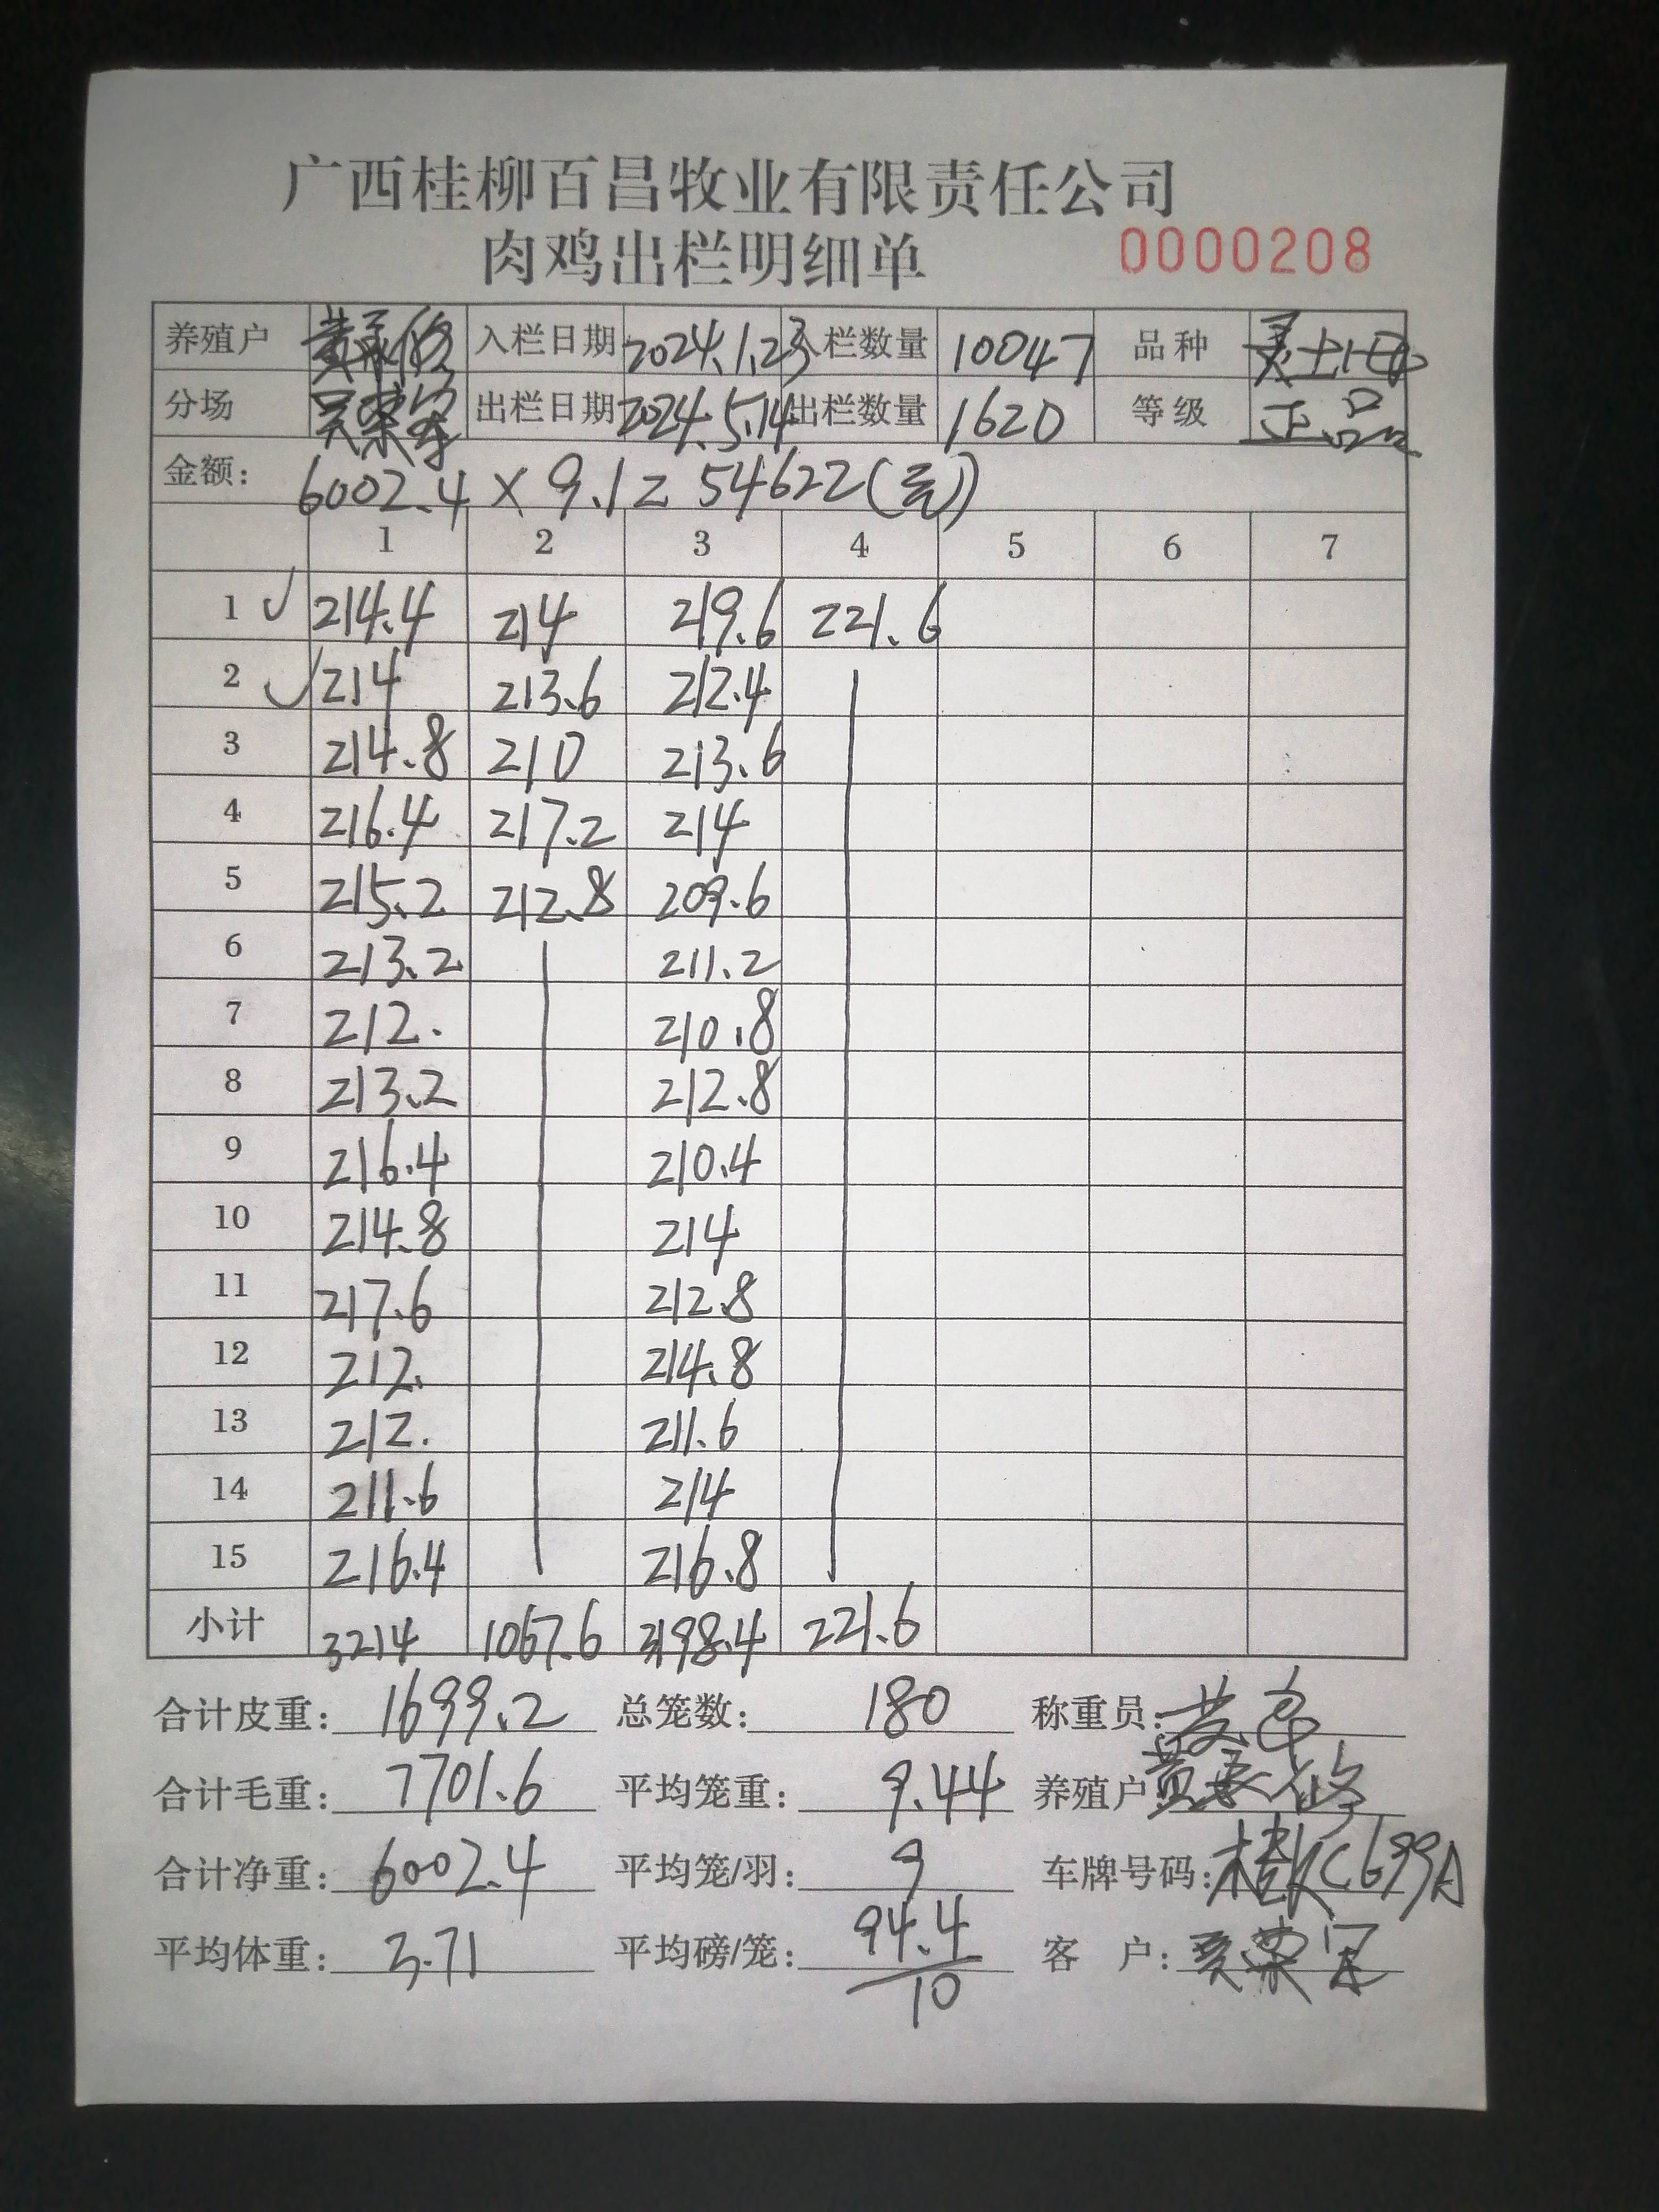 广西桂柳百昌牧业有限责任公司
肉鸡出栏明细单 0000208
养殖户 入栏日期 2024.1.23 入栏数量 10047 品种
分场 出栏日期 2024.5.14 出栏数量 1620 等级 正品
金额: 6002.4 × 9.1 = 54622(元)
1 2 3 4 5 6 7
1 ✓ 214.4 214 219.6 221.6
2 ✓ 214 213.6 212.4
3 214.8 210 213.6
4 216.4 217.2 214
5 215.2 212.8 209.6
6 213.2 211.2
7 212. 210.8
8 213.2 212.8
9 216.4 210.4
10 214.8 214
11 217.6 212.8
12 212. 214.8
13 212. 211.6
14 211.6 214
15 216.4 216.8
小计 3214 1067.6 3198.4 221.6
合计皮重: 1699.2 总笼数: 180 称重员:
合计毛重: 7701.6 平均笼重: 9.44 养殖户
合计净重: 6002.4 平均笼/羽: 9 车牌号码: 桂KC699A
平均体重: 3.71 平均磅/笼: 94.4/10 客 户: